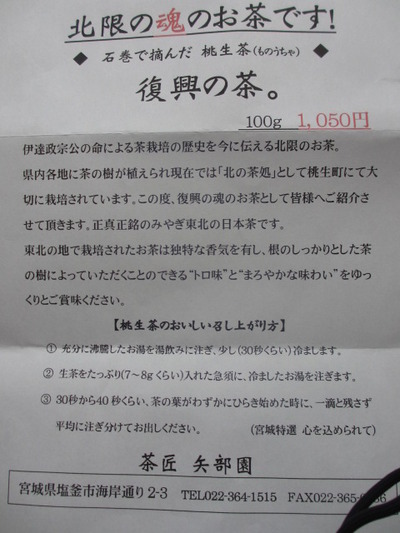 北限の魂のお茶です!
◆ 石巻で摘んだ 桃生茶(ものうちゃ) ◆
復興の茶。
100g 1,050円
伊達政宗公の命による茶栽培の歴史を今に伝える北限のお茶。
県内各地に茶の樹が植えられ現在では「北の茶処」として桃生町にて大
切に栽培されています。この度、復興の魂のお茶として皆様へご紹介さ
せて頂きます。正真正銘のみやぎ東北の日本茶です。
東北の地で栽培されたお茶は独特な香気を有し、根のしっかりとした茶
の樹によっていただくことのできる“トロ味”と“まろやかな味わい”をゆっ
くりとご賞味ください。
【桃生茶のおいしい召し上がり方】
① 充分に沸騰したお湯を湯飲みに注ぎ、少し(30秒くらい)冷まします。
② 生茶をたっぷり(7~8gくらい)入れた急須に、冷ましたお湯を注ぎます。
③ 30秒から40秒くらい、茶の葉がわずかにひらき始めた時に、一滴と残さず
平均に注ぎ分けてお出しください。 (宮城特選 心を込められて)
茶匠 矢部園
宮城県塩釜市海岸通り2-3 TEL022-364-1515 FAX022-365-